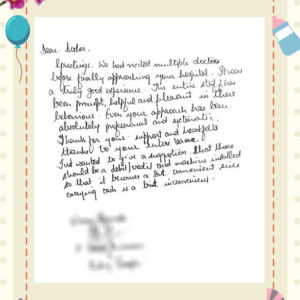 Dear Doctor,
Greetings. We had visited multiple doctors
before finally approaching your hospital. It was
a truly good experience. The entire staff has
been prompt, helpful and pleasant in their
behaviour. Even your approach has been
absolutely professional and systematic.
Thanks for your support and heartfelt
thanks to your entire team.
Just wanted to give a suggestion that there
should be a debit/credit card machine installed
so that it becomes a bit convenient since
carrying cash is a bit inconvenient.